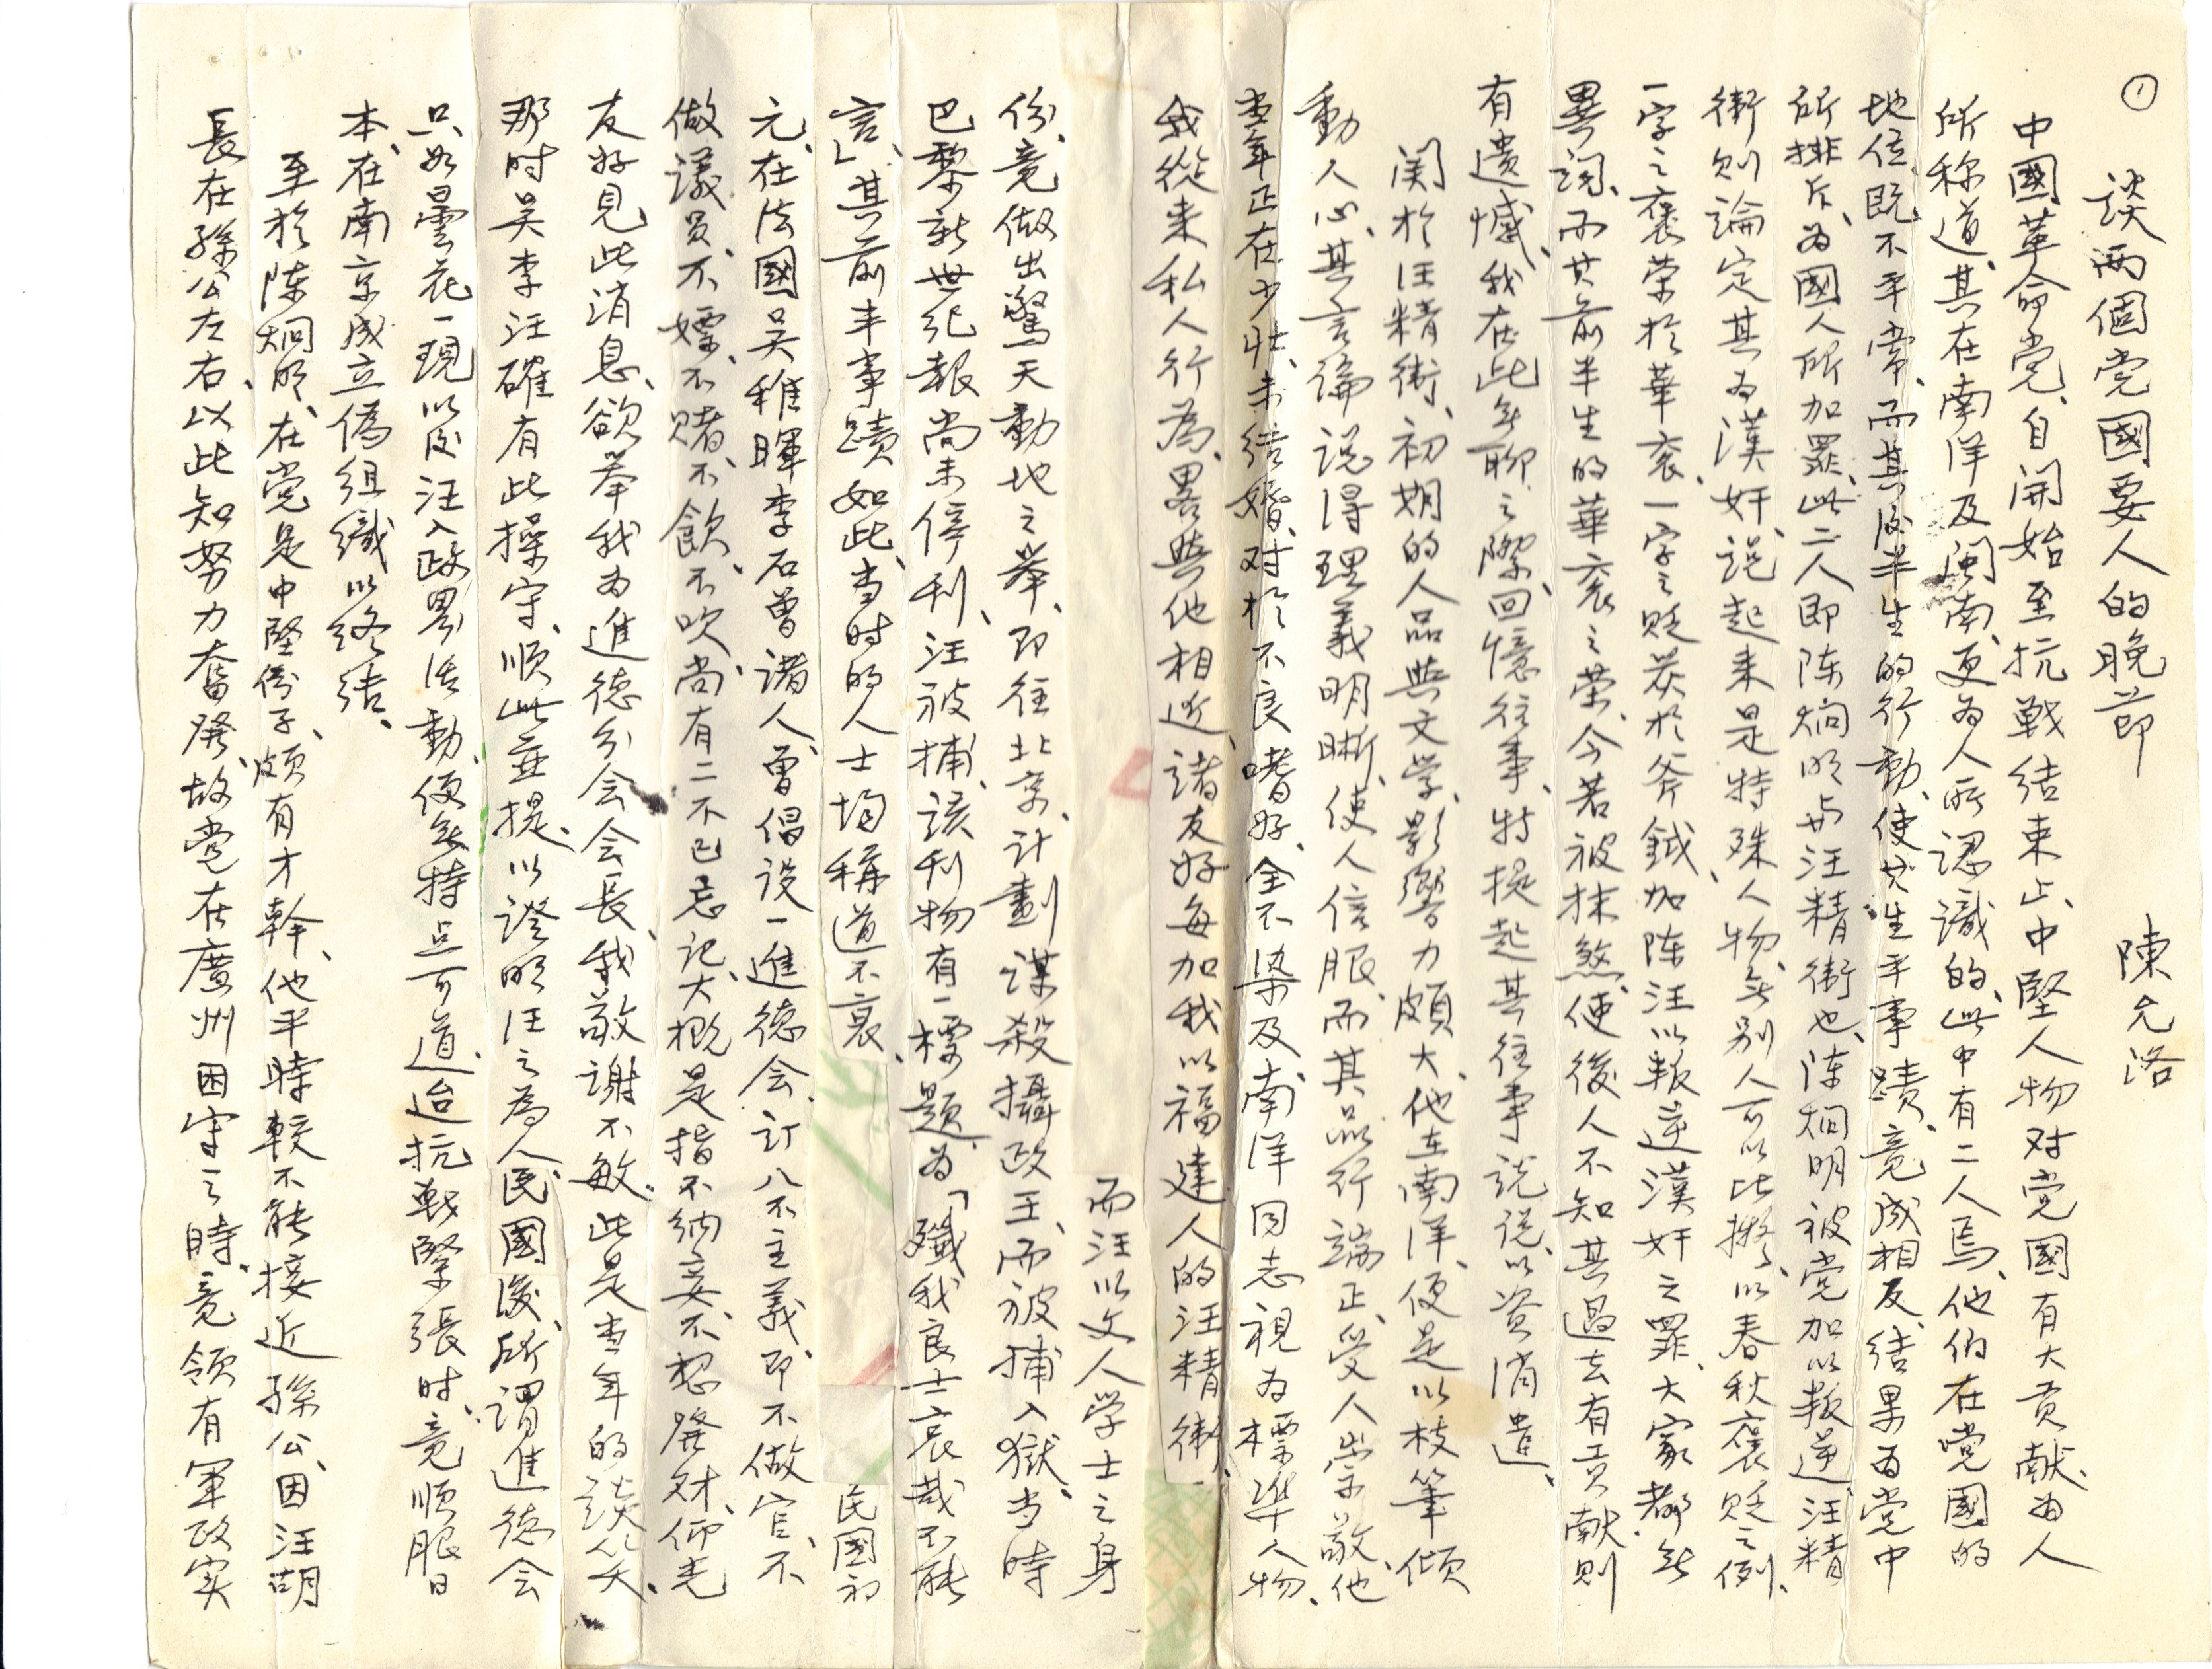 ①
談兩個党國要人的晚节
陳允洛
中國革命党、自開始至抗戰結束止、中堅人物对党國有大贡献、为人
所称道、其在南洋及闽南、更为人所認識的、此中有二人焉、他伯在党國的
地位、既不平常、而其後半生的行動、使其生平事蹟、竟成相反、结果为党中
所排斥、为國人所加罪、此二人即陈炯明与汪精衛也、陈炯明被党加以叛逆、汪精
衛則論定其为漢奸、説起来是特殊人物、无别人可以比擬、以春秋褒貶之例、
一字之褒荣於華衮、一字之貶嚴於斧鉞、加陈汪以叛逆漢奸之罪、大家都无
異詞、而其前半生的華衮之荣、今若被抹煞、使後人不知其過去有贡献、則
有遗憾、我在此无聊之際、回憶往事、特提起其往事説説、以资消遣、
関於汪精衛、初期的人品與文学、影響力頗大、他在南洋、便是以枝筆傾
動人心、其言論説得理義明晰、使人信服、而其品行端正、受人崇敬、他
当年正在少壮、未结婚、对於不良嗜好、全不染及、南洋同志視为標準人物、
我從来私人行為、畧與他相近、諸友好每加我以福建人的汪精衛、
而汪以文人学士之身
份、竟做出驚天動地之举、即往北京、计劃謀殺攝政王、而被捕入獄、当時
巴黎新世纪報尚未停刊、汪被捕、该刊物有一標題、为「殲我良士哀哉不能
言」、其前半事蹟如此、当时的人士均稱道不衰、
民國初
元、在法國吴稚暉李石曾诸人、曾倡设一進德会、订八不主義、即不做官、不
做議员、不嫖、不赌、不飲、不吹、尚有二不已忘记、大概是指不纳妾、不想發财、仰光
友好見此消息、欲举我为進德分会会長、我敬謝不敏、此是当年的談笑、
那时吴李汪確有此操守、順此並提、以證明汪之為人、民國後、所謂進德会
只如曇花一現、以及汪入政界活動、便无特点可道、迨抗戰緊張时、竟順服日
本、在南京成立偽组織以终结、
至於陈炯明、在党是中堅份子、頗有才幹、他平時較不能接近孫公、因汪胡
長在孫公左右、以此知努力奮發、故党在廣州困守之時、竟领有軍政实